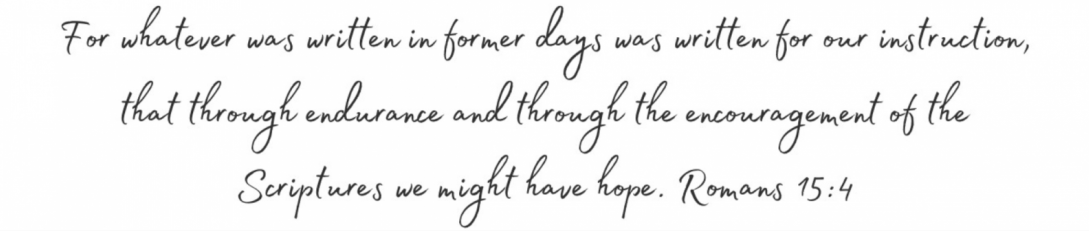 For whatever was written in former days was written for our instruction,
that through endurance and through the encouragement of the
Scriptures we might have hope. Romans 15:4